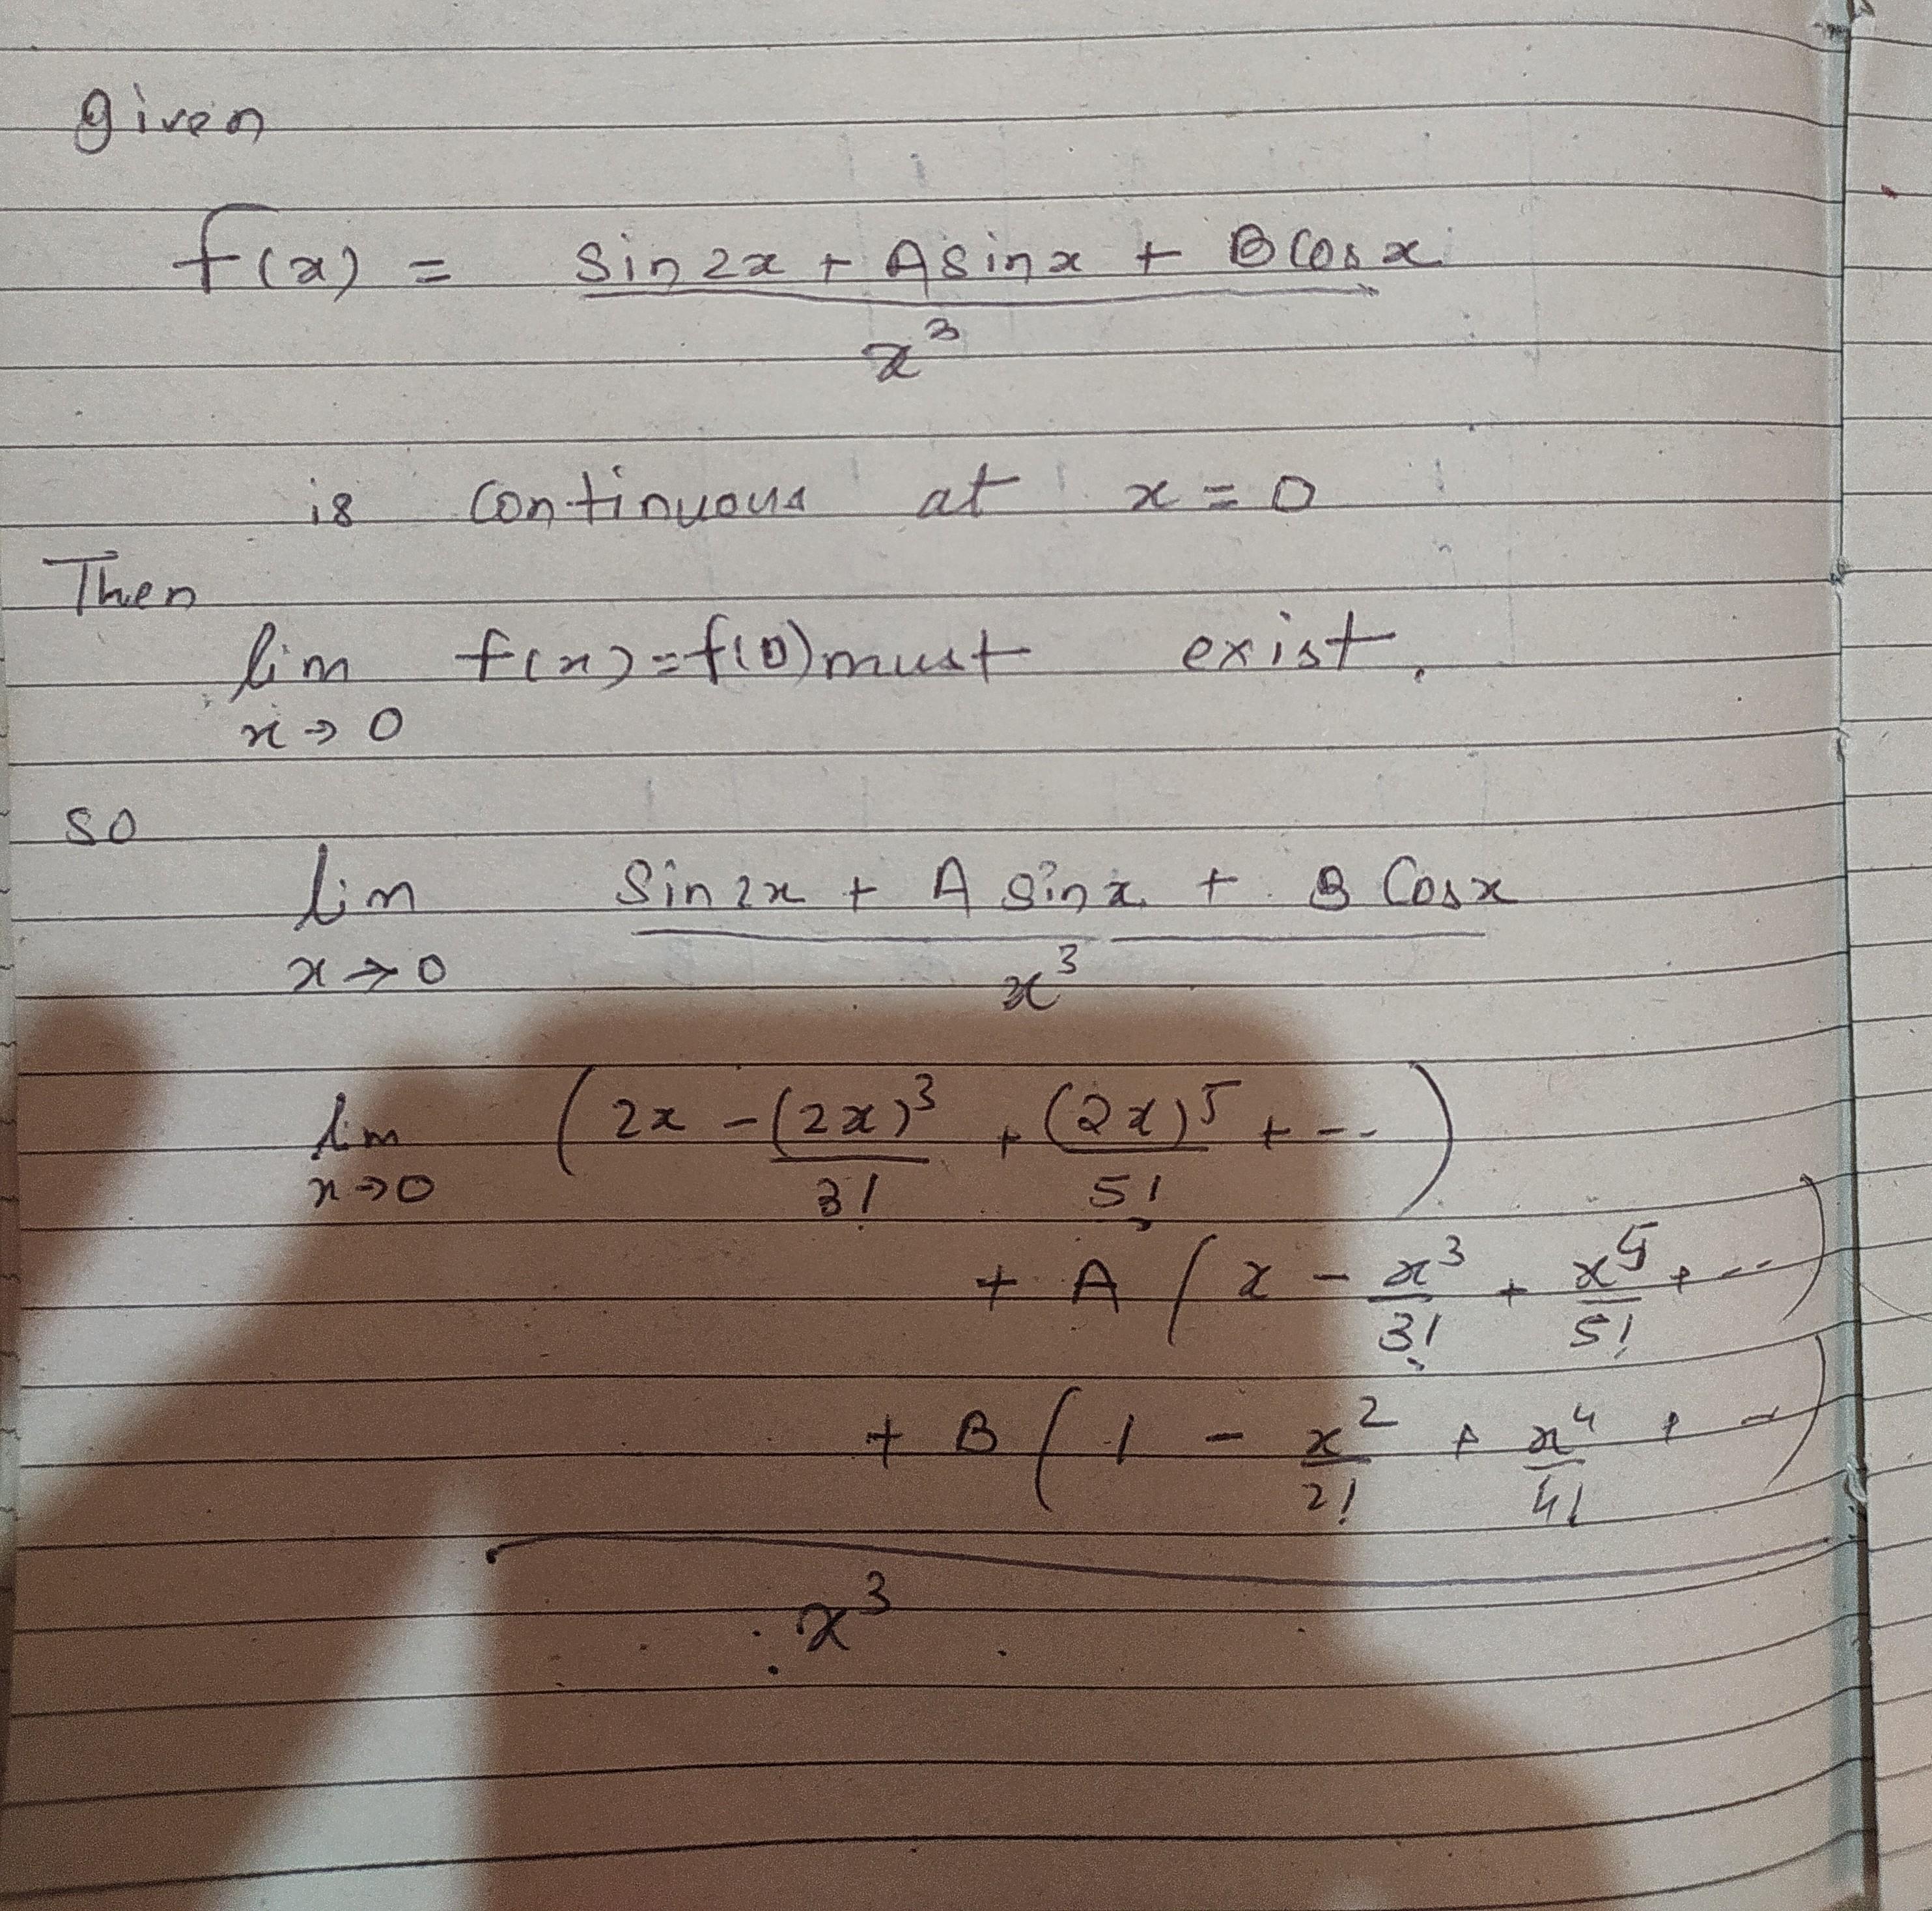 given
f(x) = sin2x + Asinx + Bcosx
x³
is continuous at x = 0
Then
lim f(x)=f(0) must exist.
x→0
so
lim sin2x + A sinx + B Cosx
x→0 x³
lim (2x - (2x)³ + (2x)⁵ + ---)
x→0 3! 5!
+ A (x - x³ + x⁵ + ---)
3! 5!
+ B (1 - x² + x⁴ + --)
2! 4!
x³